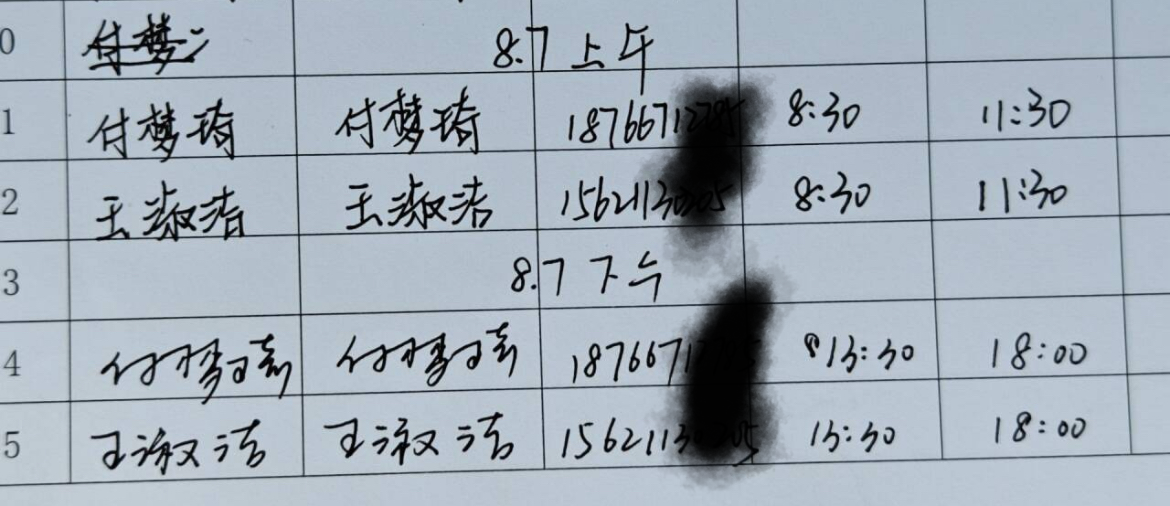 0 付梦 8.7 上午
1 付梦琦 付梦琦 1876671 8:30 11:30
2 王淑洁 王淑洁 1562113 8:30 11:30
3 8.7 下午
4 付梦琦 付梦琦 1876671 13:30 18:00
5 王淑洁 王淑洁 1562113 13:30 18:00